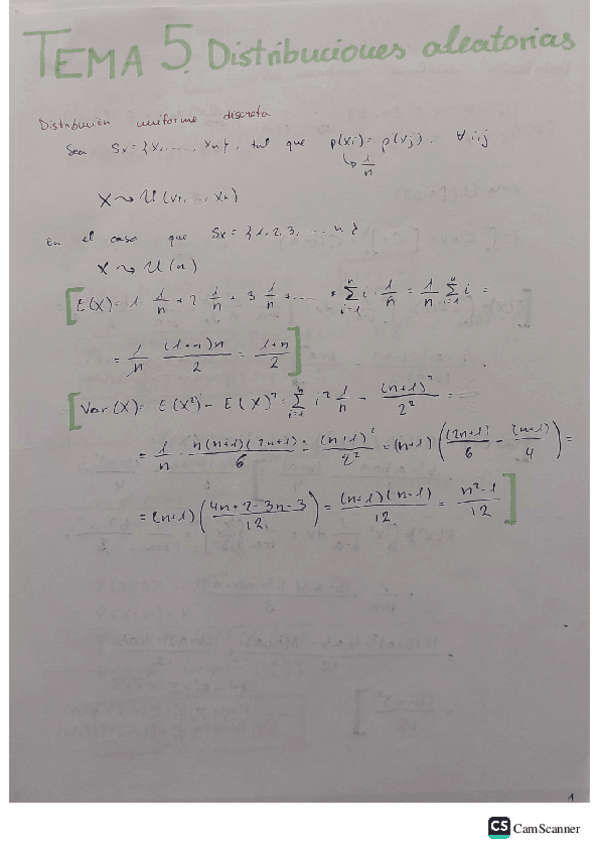 TEMA 5. Distribuciones aleatorias
Distribución uniforme discreta
Sea Sx = {x1, ..., xn}, tal que p(xi) = p(xj). ∀ i,j
↳ 1/n
X ⇝ U(x1, .., xn)
En el caso que Sx = {1, 2, 3, ... n}
X ⇝ U(n)
[E(X) = 1 · 1/n + 2 · 1/n + 3 · 1/n + .... = ∑_{i=1}^{n} i · 1/n = 1/n ∑_{i=1}^{n} i =
= 1/n · (1+n)n/2 = (1+n)/2]
[Var(X) = E(X²) - E(X)² = ∑_{i=1}^{n} i² 1/n - (n+1)²/2² =
= 1/n · n(n+1)(2n+1)/6 - (n+1)²/2² = (n+1) ((2n+1)/6 - (n+1)/4) =
= (n+1) ((4n+2-3n-3)/12) = (n+1)(n-1)/12 = (n²-1)/12]
1
CS CamScanner